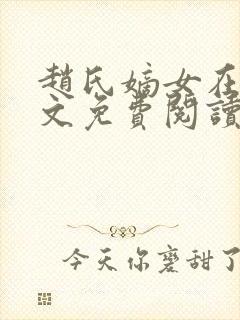 趙氏嫡女在
文免費閱讀
今天你磨甜了